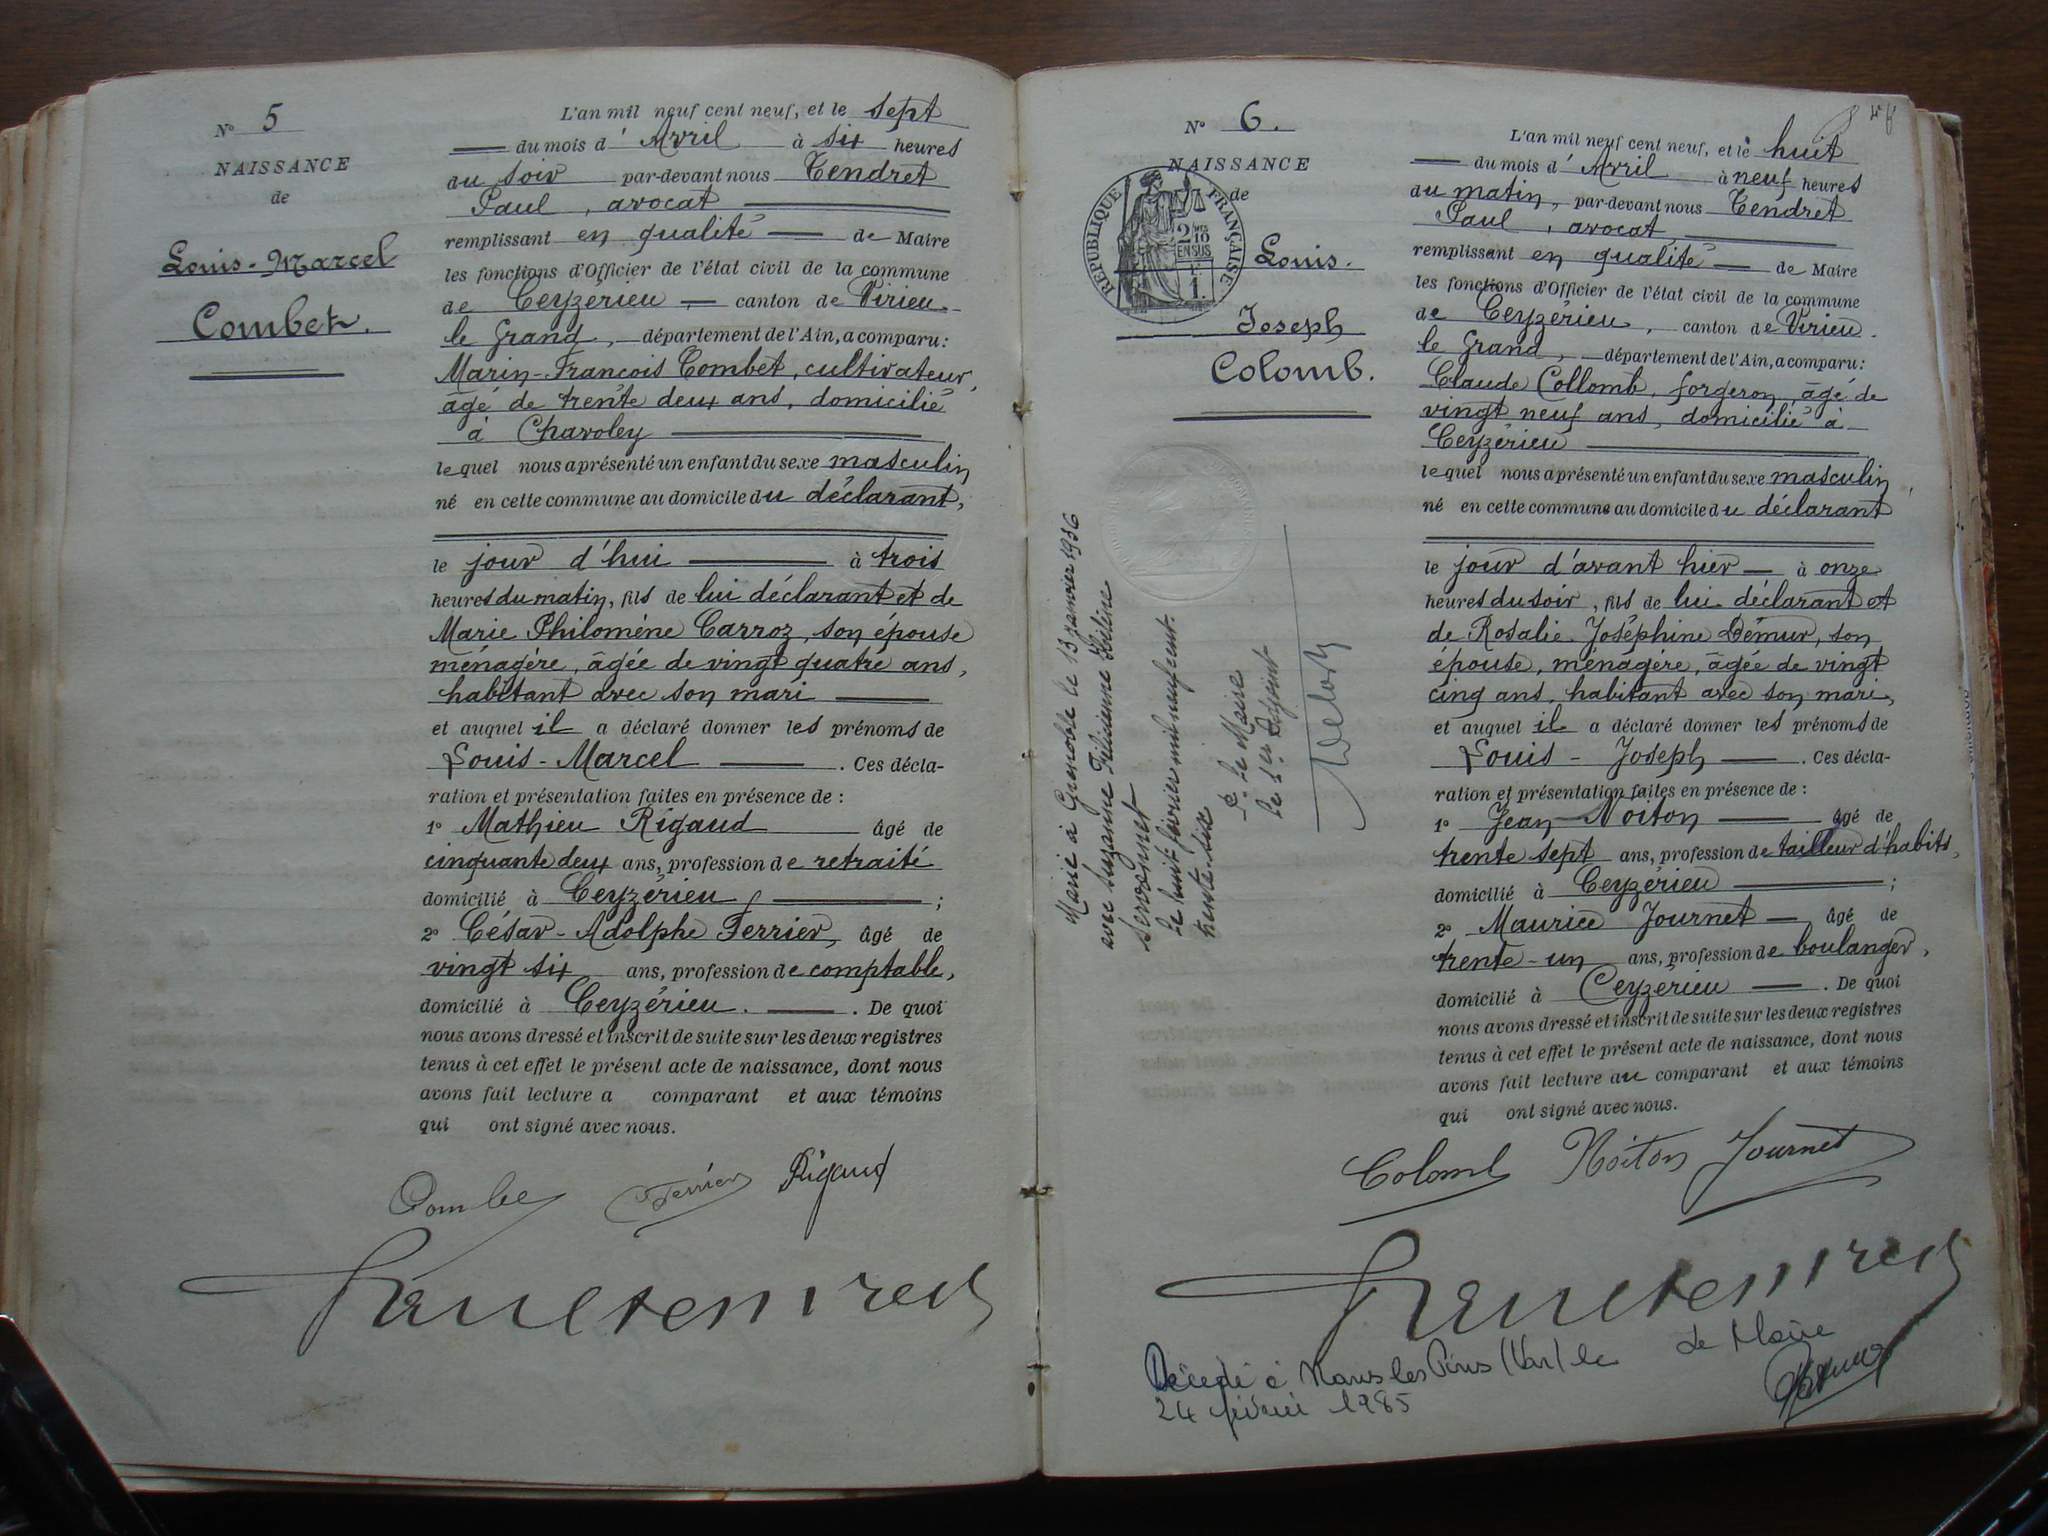 Nº 5
NAISSANCE
de
Louis-Marcel
Combet.
L'an mil neuf cent neuf, et le sept
du mois d'Avril à six heures
du soir par-devant nous Tendret
Paul, avocat
remplissant en qualité de Maire
les fonctions d'Officier de l'état civil de la commune
de Ceyzérieu, canton de Virieu-
le Grand, département de l'Ain, a comparu:
Marin-Francois Combet, cultivateur,
âgé de trente deux ans, domicilié
à Chavoley
lequel nous a présenté un enfant du sexe masculin
né en cette commune au domicile du déclarant,
le jour d'hui à trois
heures du matin, fils de lui déclarant et de
Marie Philomène Carroz, son épouse
ménagère, âgée de vingt quatre ans,
habitant avec son mari
et auquel il a déclaré donner les prénoms de
Louis-Marcel . Ces décla-
ration et présentation faites en présence de :
1º Mathieu Rigaud âgé de
cinquante deux ans, profession de retraité
domicilié à Ceyzérieu ;
2º César-Adolphe Ferrier, âgé de
vingt six ans, profession de comptable,
domicilié à Ceyzérieu. . De quoi
nous avons dressé et inscrit de suite sur les deux registres
tenus à cet effet le présent acte de naissance, dont nous
avons fait lecture a comparant et aux témoins
qui ont signé avec nous.
Combe Ferrier Rigaud
Paul Tendret
Nº 6.
NAISSANCE
de
RÉPUBLIQUE FRANÇAISE
2 10
EN SUS
1
Louis.
Joseph
Colomb.
Marié à Grenoble le 13 janvier 1936
avec Suzanne
Servonnet
Le huit février mil neuf cent
trente-six
P. le Maire
le 1er Adjoint
L'an mil neuf cent neuf, et le huit
du mois d'Avril à neuf heures
du matin, par-devant nous Tendret
Paul, avocat
remplissant en qualité de Maire
les fonctions d'Officier de l'état civil de la commune
de Ceyzérieu, canton de Virieu.
le Grand, département de l'Ain, a comparu:
Claude Collomb, forgeron, âgé de
vingt neuf ans, domicilié à
Ceyzérieu
lequel nous a présenté un enfant du sexe masculin,
né en cette commune au domicile du déclarant
le jour d'avant hier à onze
heures du soir, fils de lui déclarant et
de Rosalie Joséphine Démur, son
épouse, ménagère, âgée de vingt
cinq ans, habitant avec son mari,
et auquel il a déclaré donner les prénoms de
Louis-Joseph . Ces décla-
ration et présentation faites en présence de :
1º Jean Noiton âgé de
trente sept ans, profession de tailleur d'habits,
domicilié à Ceyzérieu ;
2º Maurice Journet, âgé de
trente-un ans, profession de boulanger,
domicilié à Ceyzérieu . De quoi
nous avons dressé et inscrit de suite sur les deux registres
tenus à cet effet le présent acte de naissance, dont nous
avons fait lecture au comparant et aux témoins
qui ont signé avec nous.
Colomb Noiton Journet
Paul Tendret
Décédé à Nans les Pins (Var) le
24 février 1985
Le Maire